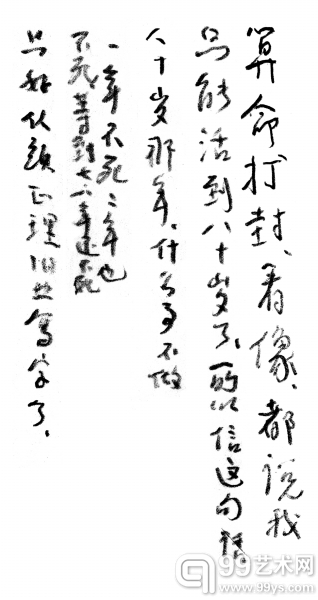 算命打封、看像、都说我
只能活到八十岁了、所以信这句话
八十岁那年、什么事不做
一年不死二年也
不死等到七六年还不死
只好从头正理旧业写字了、
99艺术网
www.99ys.com